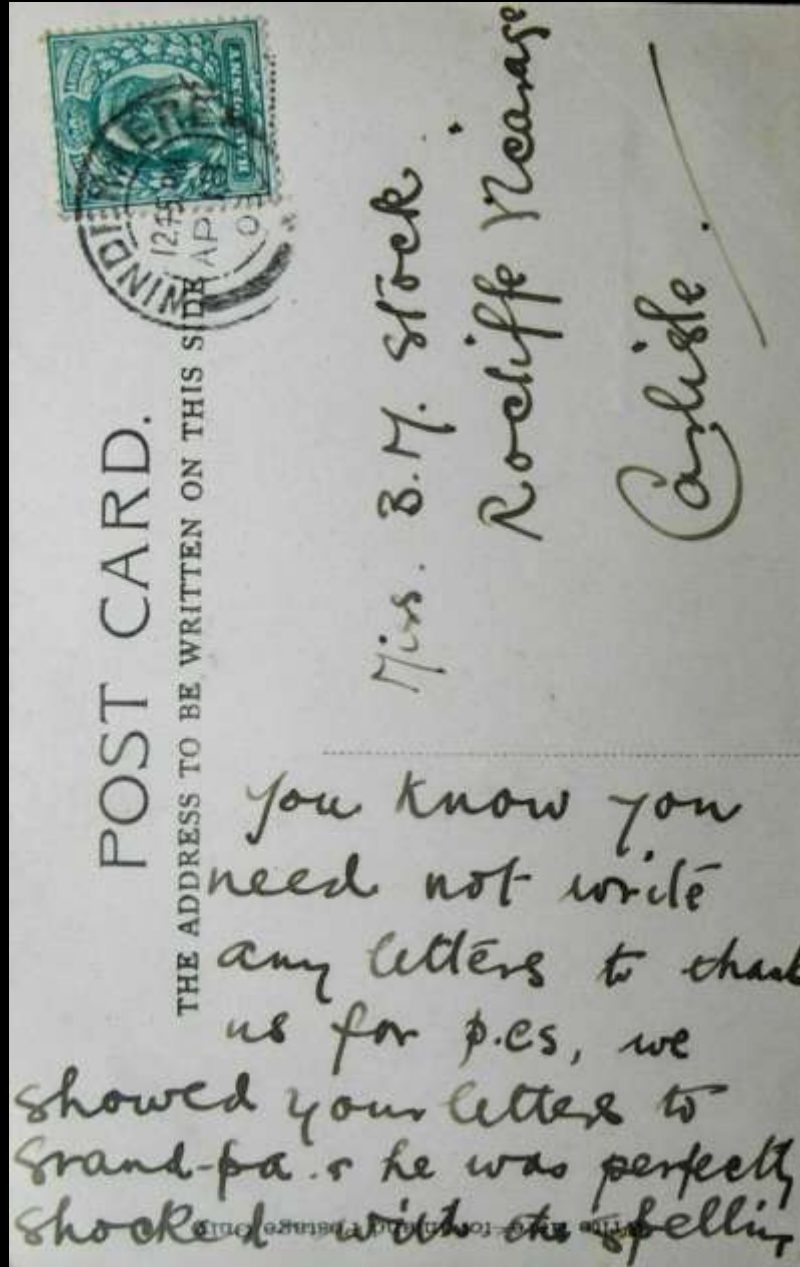 POST CARD.
THE ADDRESS TO BE WRITTEN ON THIS SIDE
HALFPENNY
WINDERMERE
12.15 PM
AP 18
Miss. B.M. Stock.
Rocliffe Vicarage
Carlisle.
you know you
need not write
any letters to thank
us for p.cs, we
showed your letters to
Grand-pa. & he was perfectly
shocked with the spelling